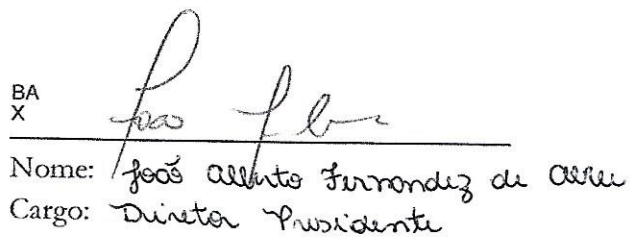 BA
X
Nome: João Alberto Fernandez de Abreu
Cargo: Diretor Presidente